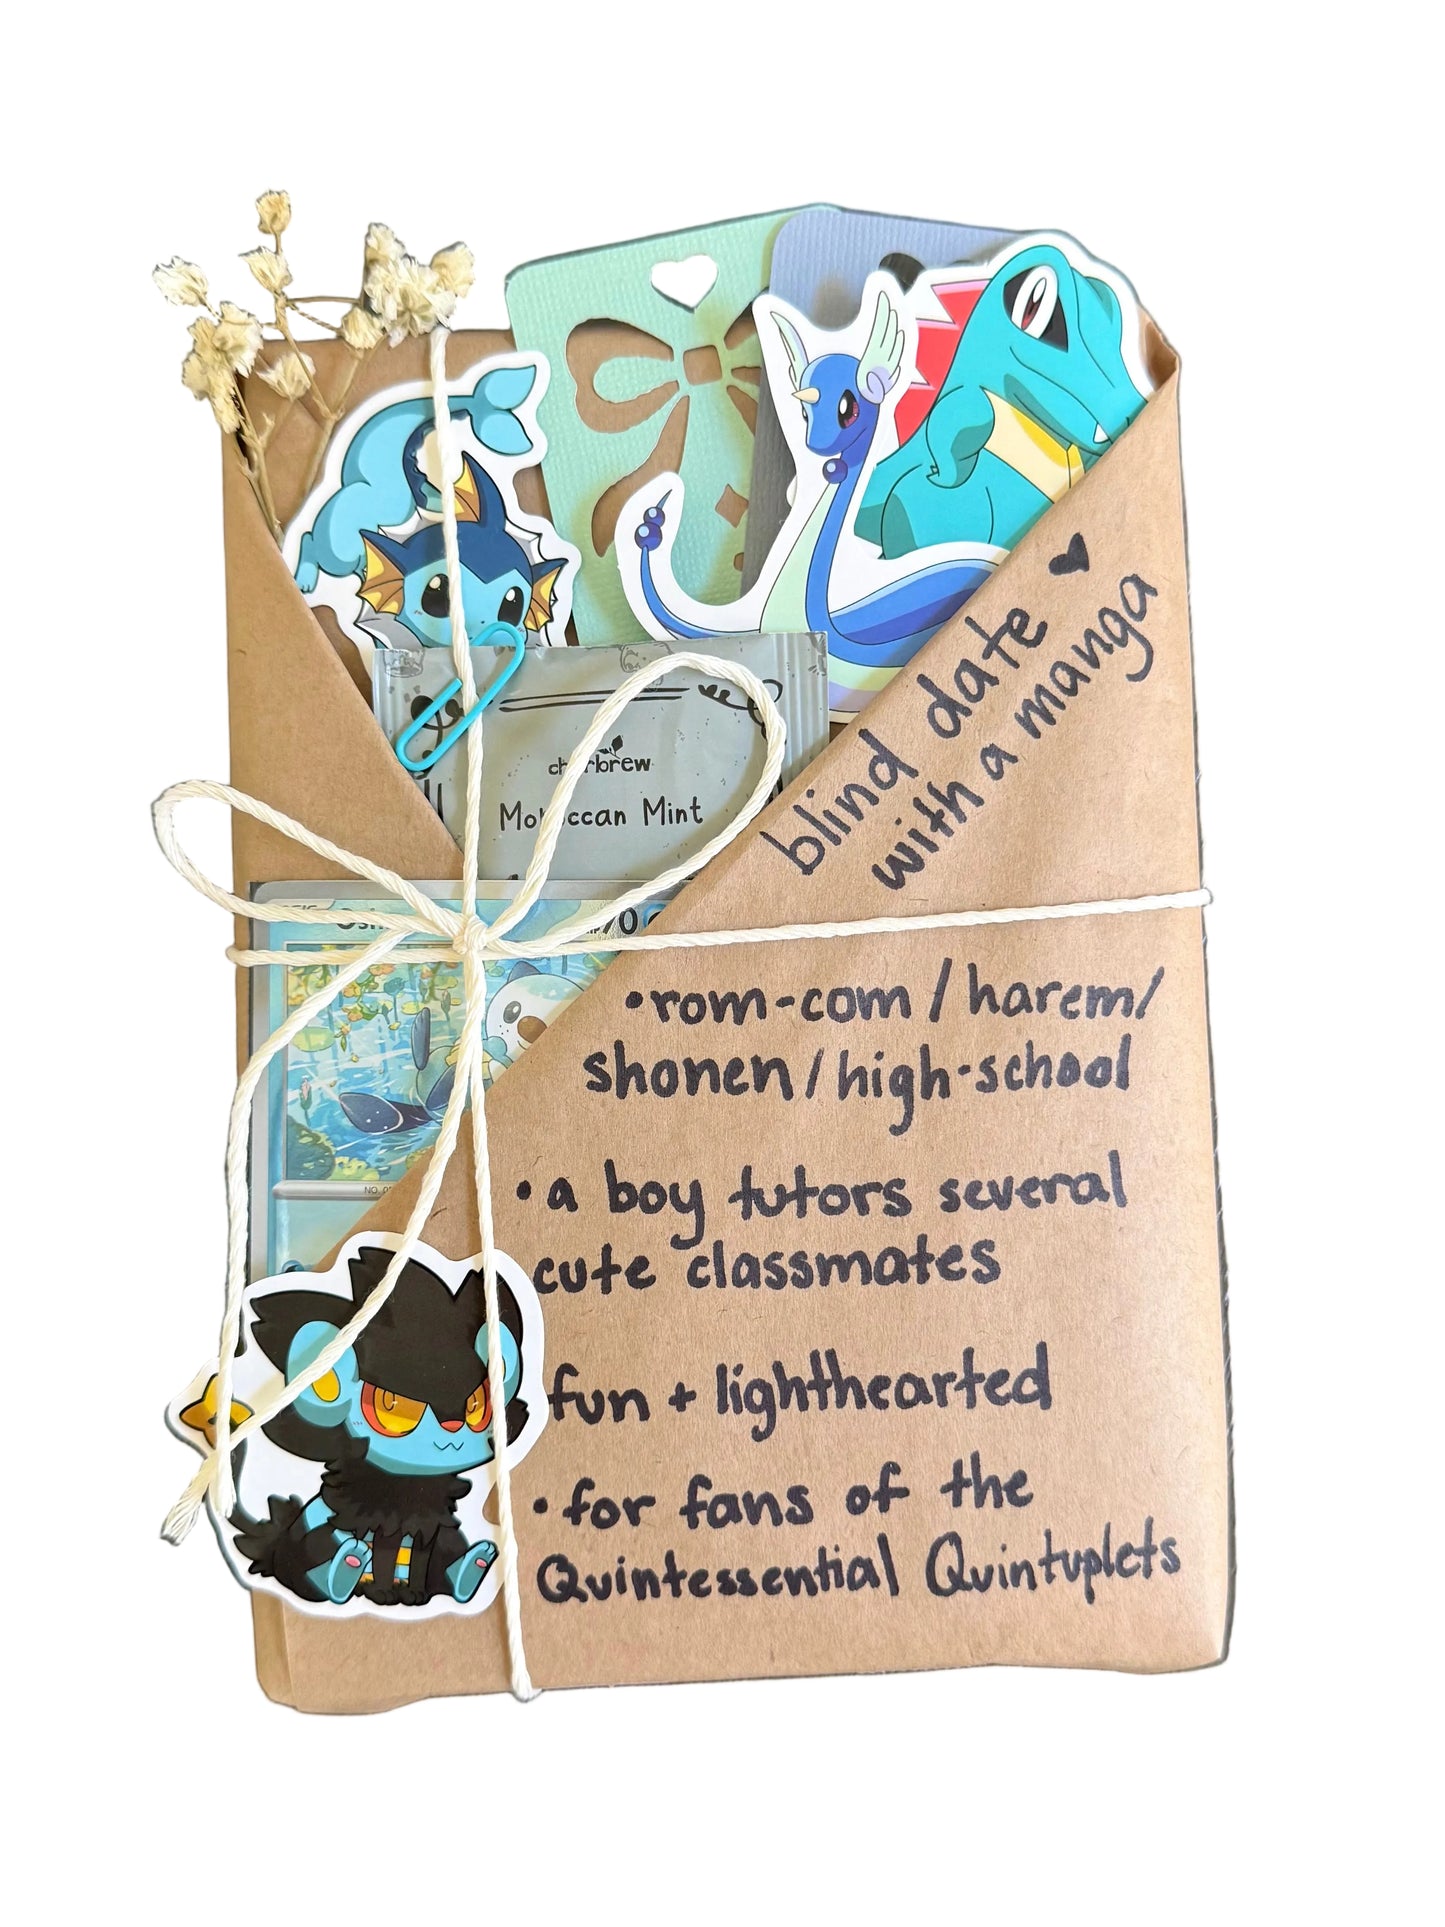 charbrew
Moroccan Mint
blind date ♥
with a manga
70
NO.
• rom-com / harem /
shonen / high-school
• a boy tutors several
cute classmates
fun + lighthearted
• for fans of the
Quintessential Quintuplets